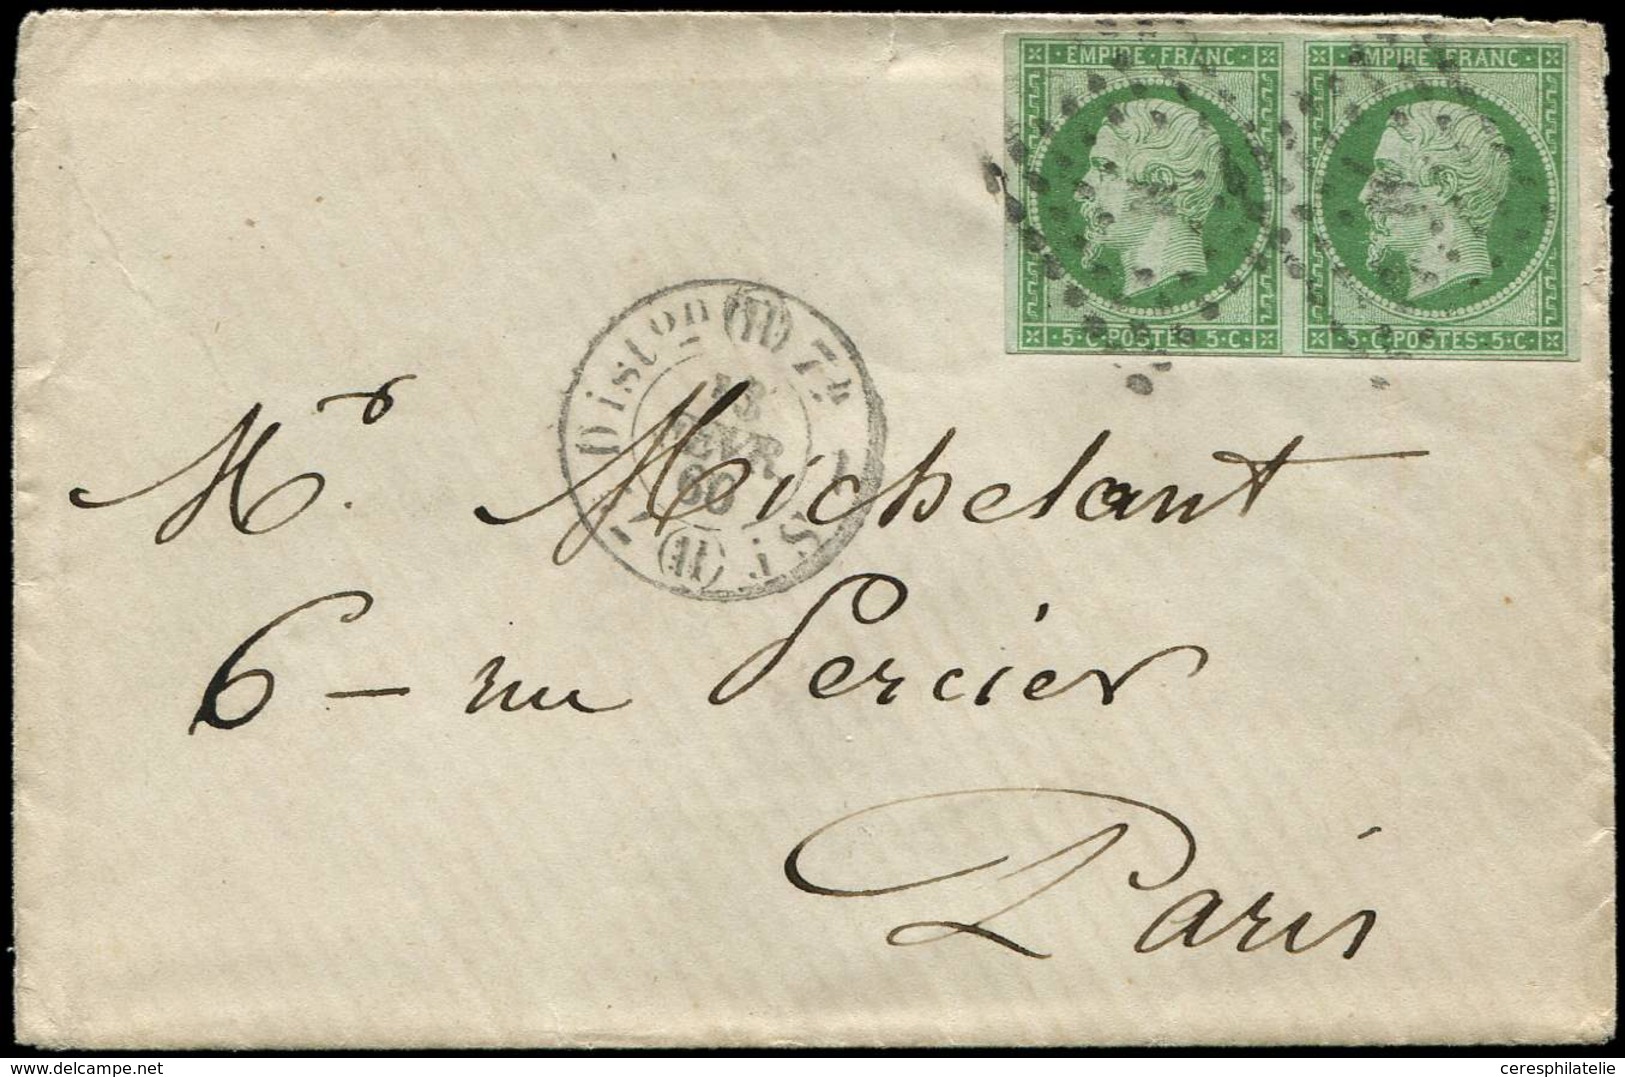 EMPIRE·FRANC· EMPIRE·FRANC·
·5·C·POSTES·5·C· ·5·C·POSTES·5·C·
Diston (H) 7h
13
FEVR
60
(H)
Mr. Michelant
6 - rue Percier
Paris
www.delcampe.net
ceresphilatelie